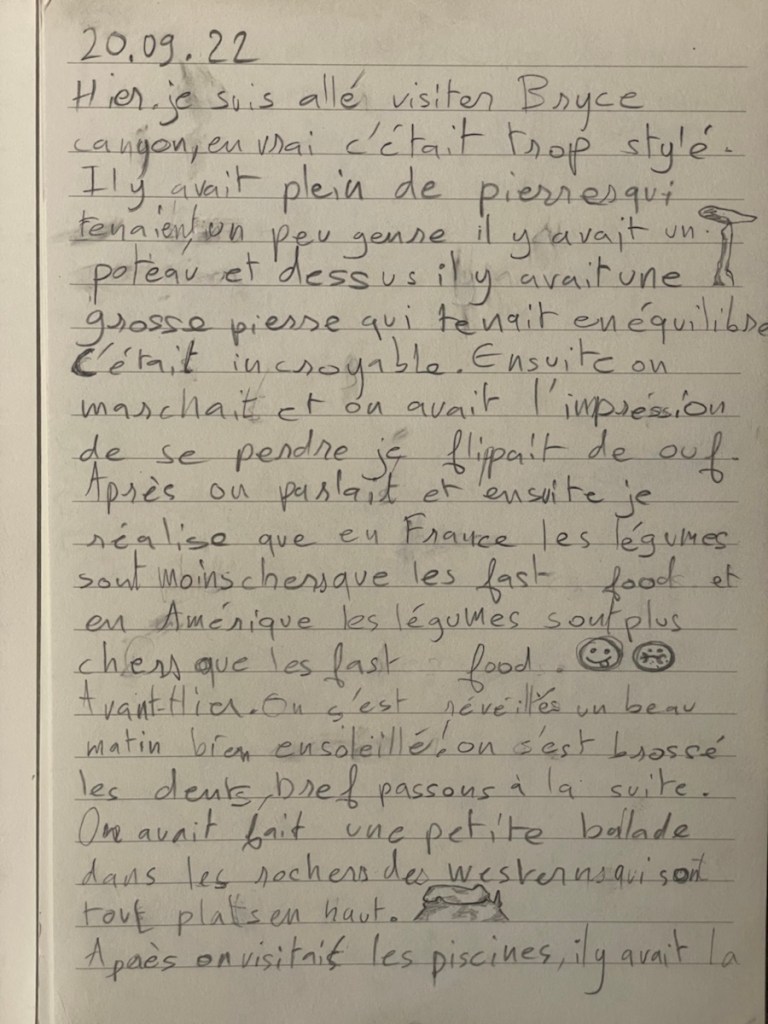 20.09.22
Hier, je suis allé visiter Bryce
canyon, en vrai c'était trop stylé.
Il y avait plein de pierres qui
tenaient un peu genre il y avait un
poteau et dessus il y avait une
grosse pierre qui tenait en équilibre
C'était incroyable. Ensuite on
marchait et on avait l'impréssion
de se perdre je flippait de ouf.
Après on parlait et ensuite je
réalise que en France les légumes
sont moins chers que les fast food et
en Amérique les légumes sont plus
chers que les fast food.
Avant-Hier. On s'est réveillés un beau
matin bien ensoleillé! on s'est brossé
les dents, bref passons à la suite.
On avait fait une petite balade
dans les rochers des westerns qui sont
tout plats en haut.
Après on visitait les piscines, il y avait la